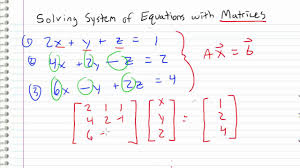 Solving System of Equations with Matrices
(1) 2x + y + z = 1
(2) 4x + 2y - z = 2
(3) 6x - y + 2z = 4
Ax = b
2 1 1 x 1
4 2 -1 y = 2
6 - z 4